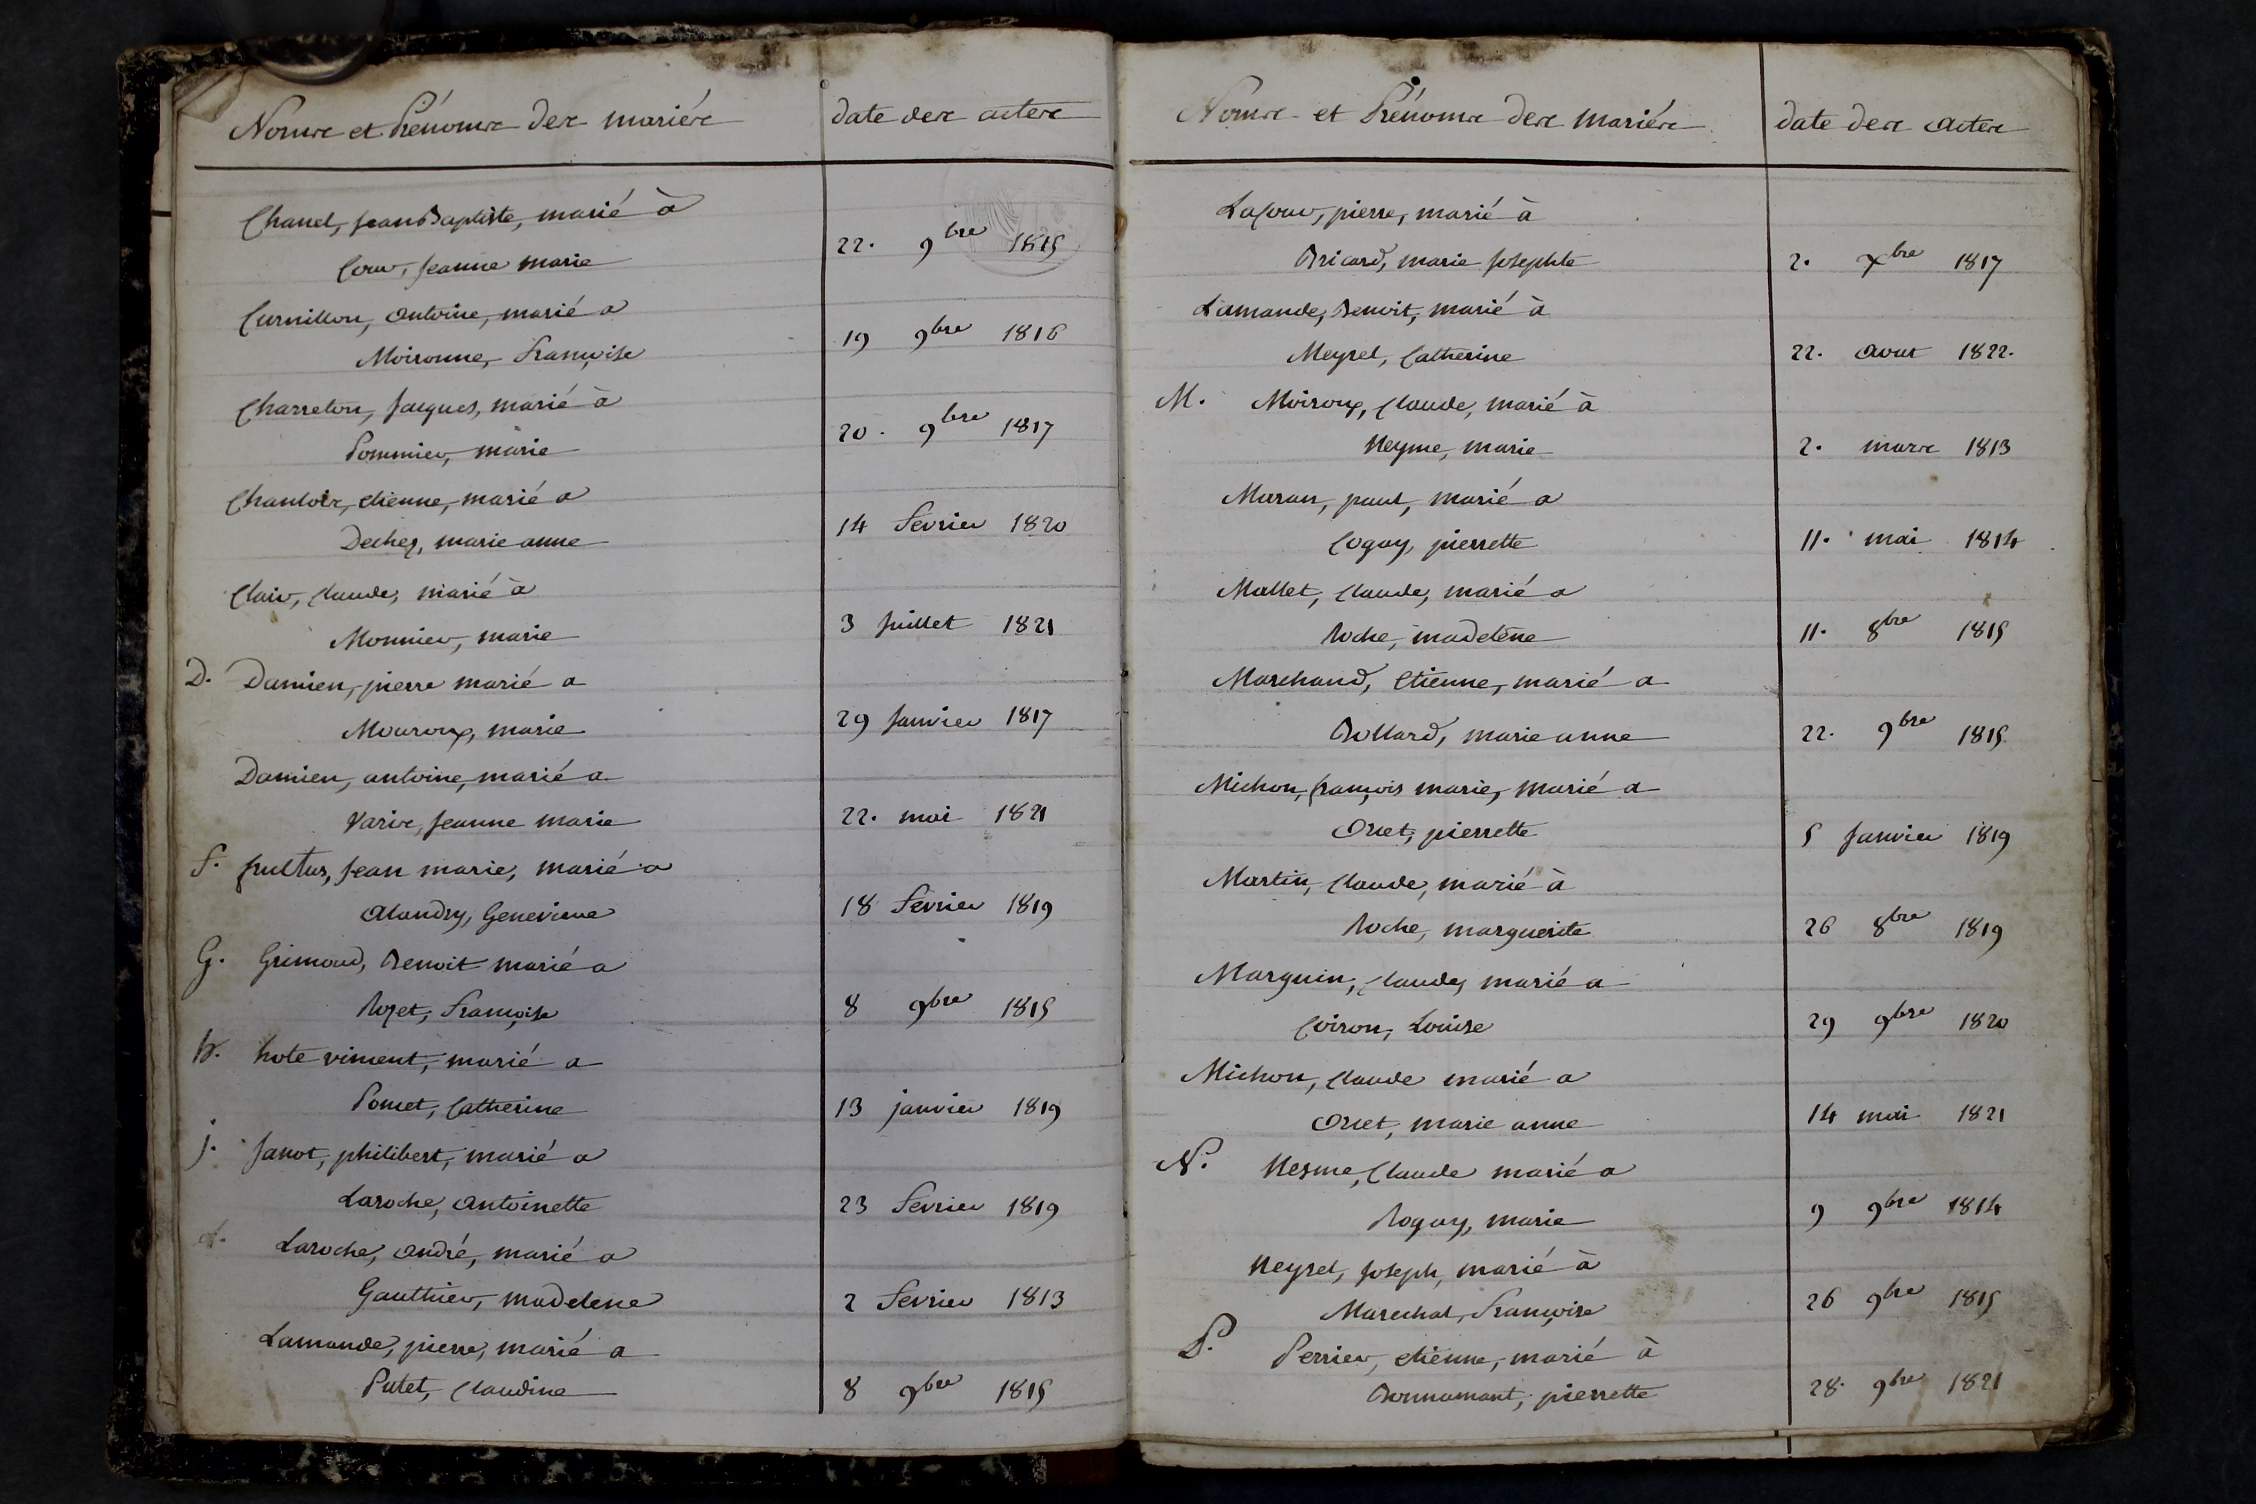 Noms et Prénoms des mariés
date des actes
Chanel, Jean Baptiste, marié à
Cour, Jeanne marie
22. 9bre 1815
Curnillon, antoine, marié a
Moironne, Françoise
19 9bre 1816
Charreton, Jacques, marié à
Pommier, marie
20. 9bre 1817
Chanlois, etienne, marié a
Dechez, marie anne
14 Fevrier 1820
Clair, claude, marié à
Monnier, marie
3 Juillet 1821
D. Damien, pierre marié a
Mouroux, marie
29 Janvier 1817
Damien, antoine, marié a
Varix, Jeanne marie
22. mai 1821
F. Jean marie, marié a
alandry, Genevieve
18 Fevrier 1819
G. Grimaud, Benoit marié a
Rozet, Françoise
8 9bre 1815
h. hote vincent, marié a
Pomet, Catherine
13 janvier 1819
j. Janot, philibert, marié a
Laroche, antoinette
23 Fevrier 1819
L. Laroche, andré, marié a
Gauthier, madelene
2 Fevrier 1813
Lamande, pierre, marié a
Putet, Claudine
8 9bre 1815
Noms et Prénoms des mariés
date des actes
Lacour, pierre, marié à
Bricard, marie Josephte
2. Xbre 1817
Lamande, Benoit, marié à
Meyret, Catherine
22. aout 1822.
M. Moiroux, Claude, marié à
Neyme, marie
2. mars 1813
Maran, paul, marié a
Cogay, pierrette
11. mai 1814
Mallet, Claude, marié a
Roche, madelène
11. 8bre 1815
Marchand, Etienne, marié a
Bollard, marie anne
22. 9bre 1815
Michon, françois marie, marié a
Orcet, pierrette
5 Janvier 1819
Martin, Claude, marié à
Roche, marguerite
26 8bre 1819
Marguin, Claude, marié a
Coiron, Louise
29 9bre 1820
Michon, Claude marié a
Orcet, marie anne
14 mai 1821
N. Nesme, Claude marié a
Rogay, marie
9 9bre 1814
Neyret, Joseph, marié à
Marechal, Françoise
26 9bre 1815
P. Perrier, etienne, marié à
Bonnamant, pierrette
28. 9bre 1821